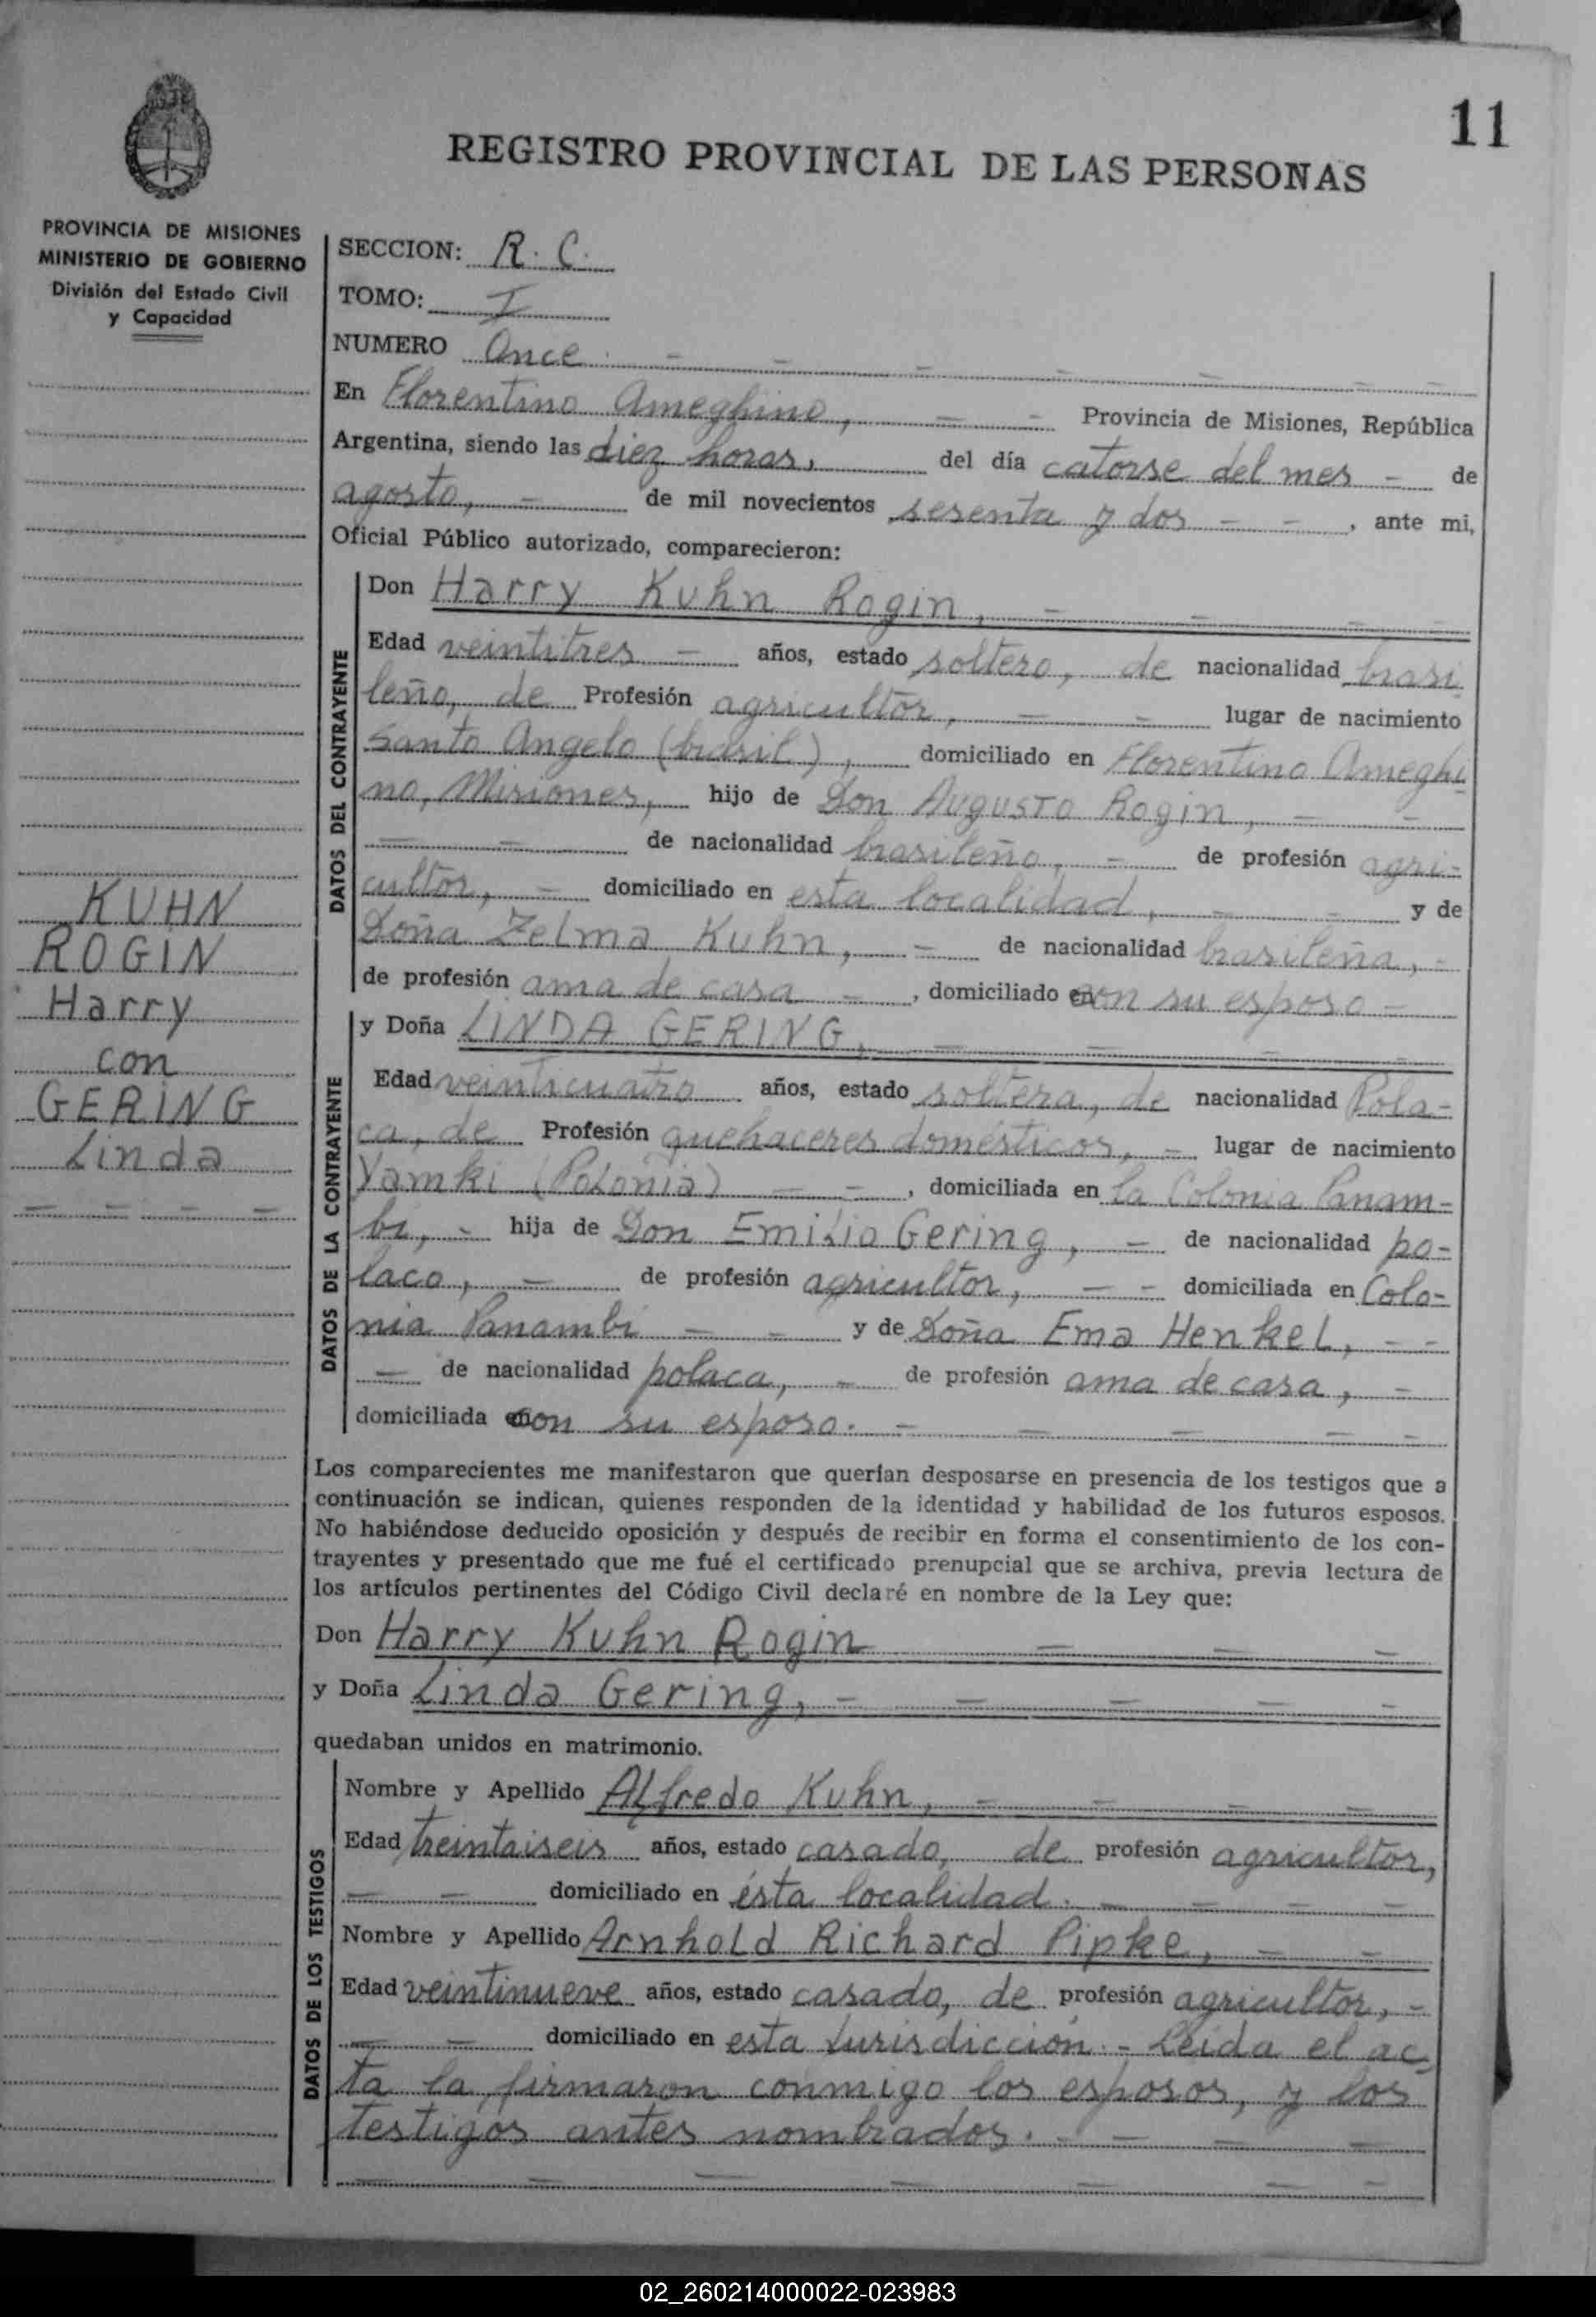 11
REGISTRO PROVINCIAL DE LAS PERSONAS
PROVINCIA DE MISIONES
MINISTERIO DE GOBIERNO
División del Estado Civil
y Capacidad
KUHN
ROGIN
Harry
con
GERING
Linda
SECCION: R. C.
TOMO: I
NUMERO Once.
En Florentino Ameghino, Provincia de Misiones, República
Argentina, siendo las diez horas, del día catorse del mes de
agosto, de mil novecientos sesenta y dos, ante mi,
Oficial Público autorizado, comparecieron:
DATOS DEL CONTRAYENTE
Don Harry Kuhn Rogin,
Edad veintitres años, estado soltero, de nacionalidad brasi
leño, de Profesión agricultor, lugar de nacimiento
Santo Angelo (brasil), domiciliado en Florentino Ameghi
no, Misiones, hijo de Don Augusto Rogin,
de nacionalidad brasileño, de profesión agri-
cultor, domiciliado en esta localidad, y de
Doña Zelma Kuhn, de nacionalidad brasileña,
de profesión ama de casa, domiciliado con su esposo
DATOS DE LA CONTRAYENTE
y Doña LINDA GERING,
Edad veinticuatro años, estado soltera, de nacionalidad Pola-
ca, de Profesión quehaceres domésticos, lugar de nacimiento
Yamki (Polonia), domiciliada en la Colonia Panam-
bí, hija de Don Emilio Gering, de nacionalidad po-
laco, de profesión agricultor, domiciliada en Colo-
nia Panambí y de Doña Ema Henkel,
de nacionalidad polaca, de profesión ama de casa,
domiciliada con su esposo.
Los comparecientes me manifestaron que querían desposarse en presencia de los testigos que a
continuación se indican, quienes responden de la identidad y habilidad de los futuros esposos.
No habiéndose deducido oposición y después de recibir en forma el consentimiento de los con-
trayentes y presentado que me fué el certificado prenupcial que se archiva, previa lectura de
los artículos pertinentes del Código Civil declaré en nombre de la Ley que:
Don Harry Kuhn Rogin
y Doña Linda Gering,
quedaban unidos en matrimonio.
DATOS DE LOS TESTIGOS
Nombre y Apellido Alfredo Kuhn,
Edad treintaiseis años, estado casado, de profesión agricultor,
domiciliado en ésta localidad.
Nombre y Apellido Arnhold Richard Pipke,
Edad veintinueve años, estado casado, de profesión agricultor,
domiciliado en esta Jurisdicción.- Leida el ac-
ta la firmaron conmigo los esposos, y los
testigos antes nombrados.
02_260214000022-023983